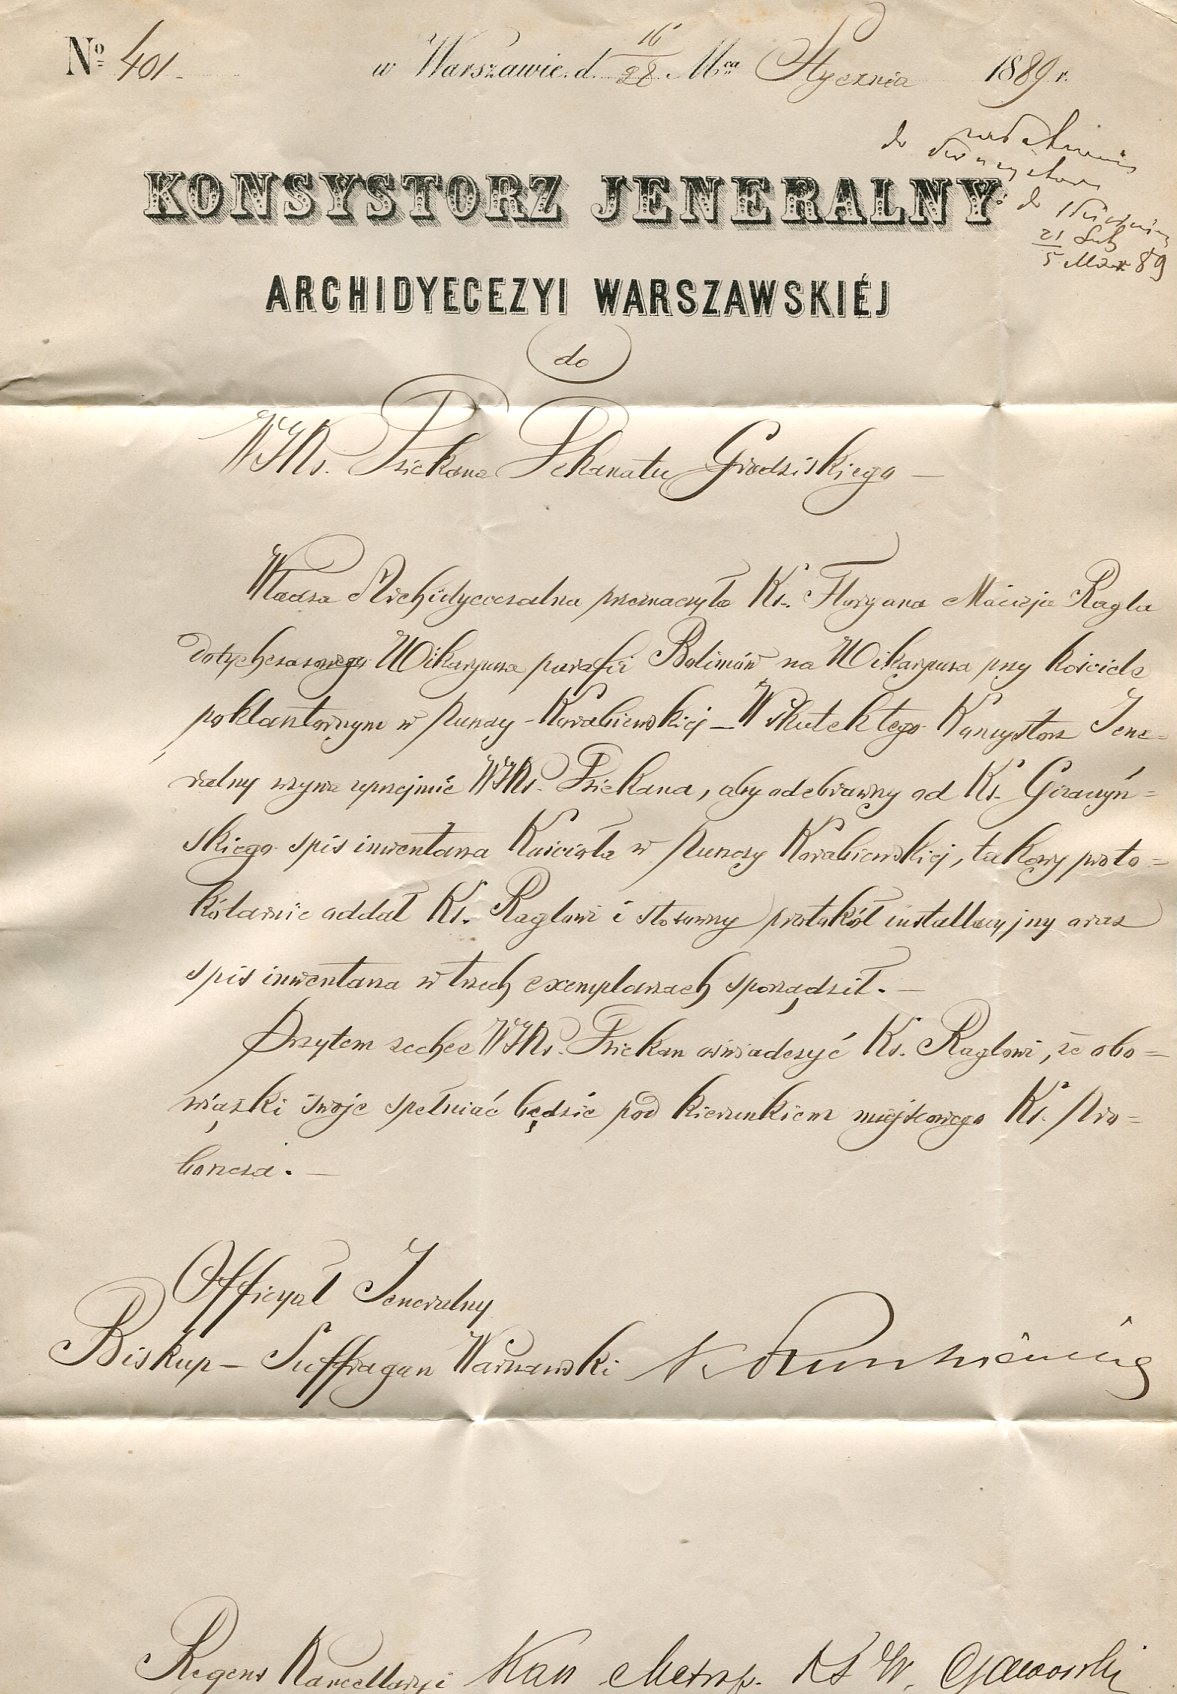 № 401.
w Warszawie d. 16/28 Mca Stycznia 1889 r.
do
do
21 Lut
5 Mar 89
KONSYSTORZ JENERALNY
ARCHIDYECEZYI WARSZAWSKIÉJ
do
WJKs. Dziekana Dekanatu Grodziskiego —
Władza Archidyecezalna przeznaczyła Ks. Floryana Macieja Ragla
dotychczasowego Wikaryusza parafii Bolimów na Wikaryusza przy kościele
poklasztornym w Puszczy-Korabiewskiej — Wskutek tego Konsystorz Jene=
ralny wzywa uprzejmie WJKs. Dziekana, aby odebrawszy od Ks. Góraczyń=
skiego spis inwentarza Kościoła w Puszczy Korabiewskiej, takowy proto=
kólarnie oddał Ks. Raglowi i stosowny protokół installacyjny oraz
spis inwentarza w trzech exemplarzach sporządził. —
Przytem zechce WJKs. Dziekan oświadczyć Ks. Raglowi, że obo=
wiązki swoje spełniać będzie pod kierunkiem miejscowego Ks. Pro=
boszcza. —
Officyał Jeneralny
Biskup – Suffragan Warszawski
Regens Kancellaryi Kan Metrop. KS W.